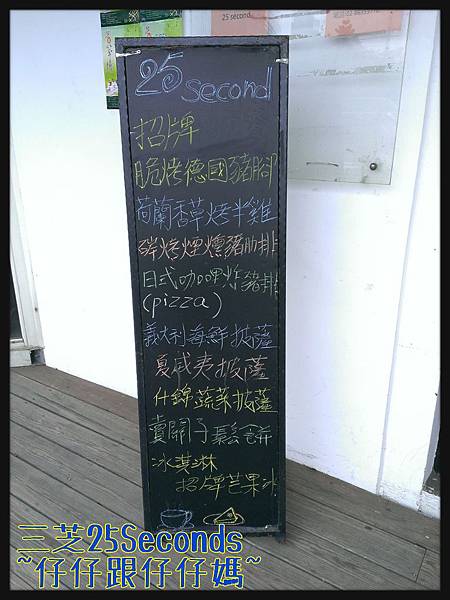 25 second
25 second
招牌
脆烤德國豬腳
荷蘭香草烤半雞
碳烤煙燻豬肋排
日式咖哩炸豬排
(pizza)
義大利海鮮披薩
夏威夷披薩
什錦蔬菜披薩
賣關子鬆餅
冰淇淋
招牌芒果冰
三芝25Seconds
~仔仔跟仔仔媽~